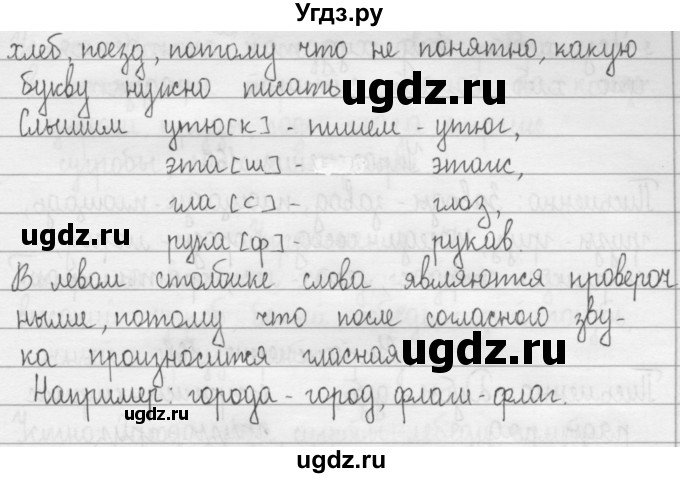 Угдз.ру
хлеб, поезд, потому что не понятно, какую
букву нужно писать
ugdz.ru
Слышим утю[к] - пишем - утюг,
эта[ш] - этаж,
гла[с] - глаз,
ugdz.ru
рука[ф] рукав.
ugdz.ru
В левом столбике слова являются провероч
ными, потому что после согласного зву-
ка произносится гласная
ugdz.ru
Например города - город, флаги - флаг.
ugdz.ru
ugdz.ru
ugdz.ru